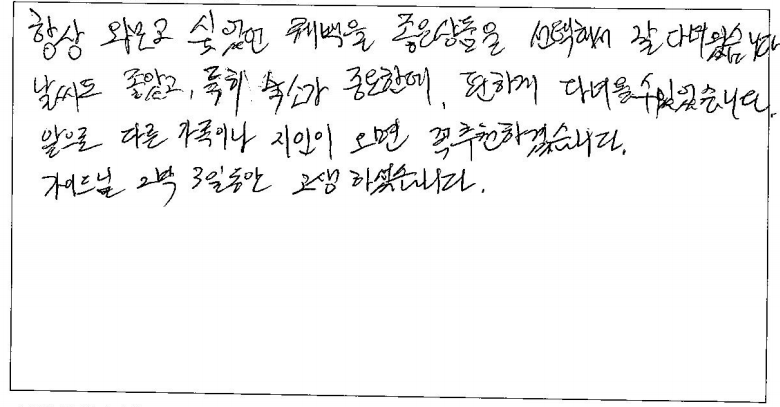 항상 와보고 싶었던 퀘벡을 좋은상품을 선택해서 잘 다녀왔습니다
날씨도 좋았고, 특히 숙소가 중요한데, 편하게 다녀올수있었습니다.
앞으로 다른 가족이나 지인이 오면 꼭추천하겠습니다.
가이드님 2박 3일동안 고생 하셨습니다.